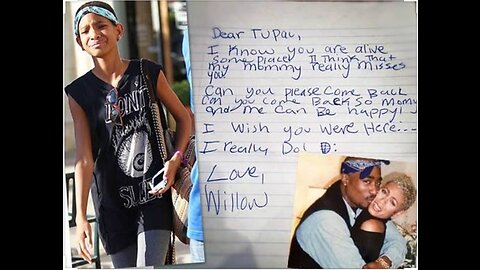 Dear TUPac,
I Know you are alive
some place. I think that
my mommy really misses
you!
Can you please come Back
Can you come Back so Momy
and me can Be happy!
I Wish you Were Here...
I really Do! D:
Love,
Willow